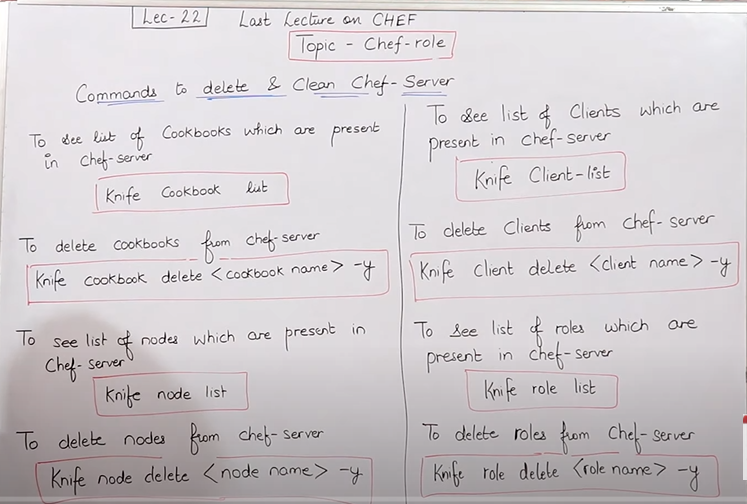 Lec-22 Last Lecture on CHEF
Topic - Chef-role
Commands to delete & Clean Chef-Server
To see list of Cookbooks which are present
in chef-server
Knife Cookbook list
To delete cookbooks from chef-server
Knife cookbook delete <cookbook name> -y
To see list of nodes which are present in
Chef-server
Knife node list
To delete nodes from chef-server
Knife node delete <node name> -y
To see list of Clients which are
present in chef-server
Knife Client-list
To delete Clients from chef-server
Knife Client delete <client name> -y
To see list of roles which are
present in chef-server
Knife role list
To delete roles from Chef-server
Knife role delete <role name> -y